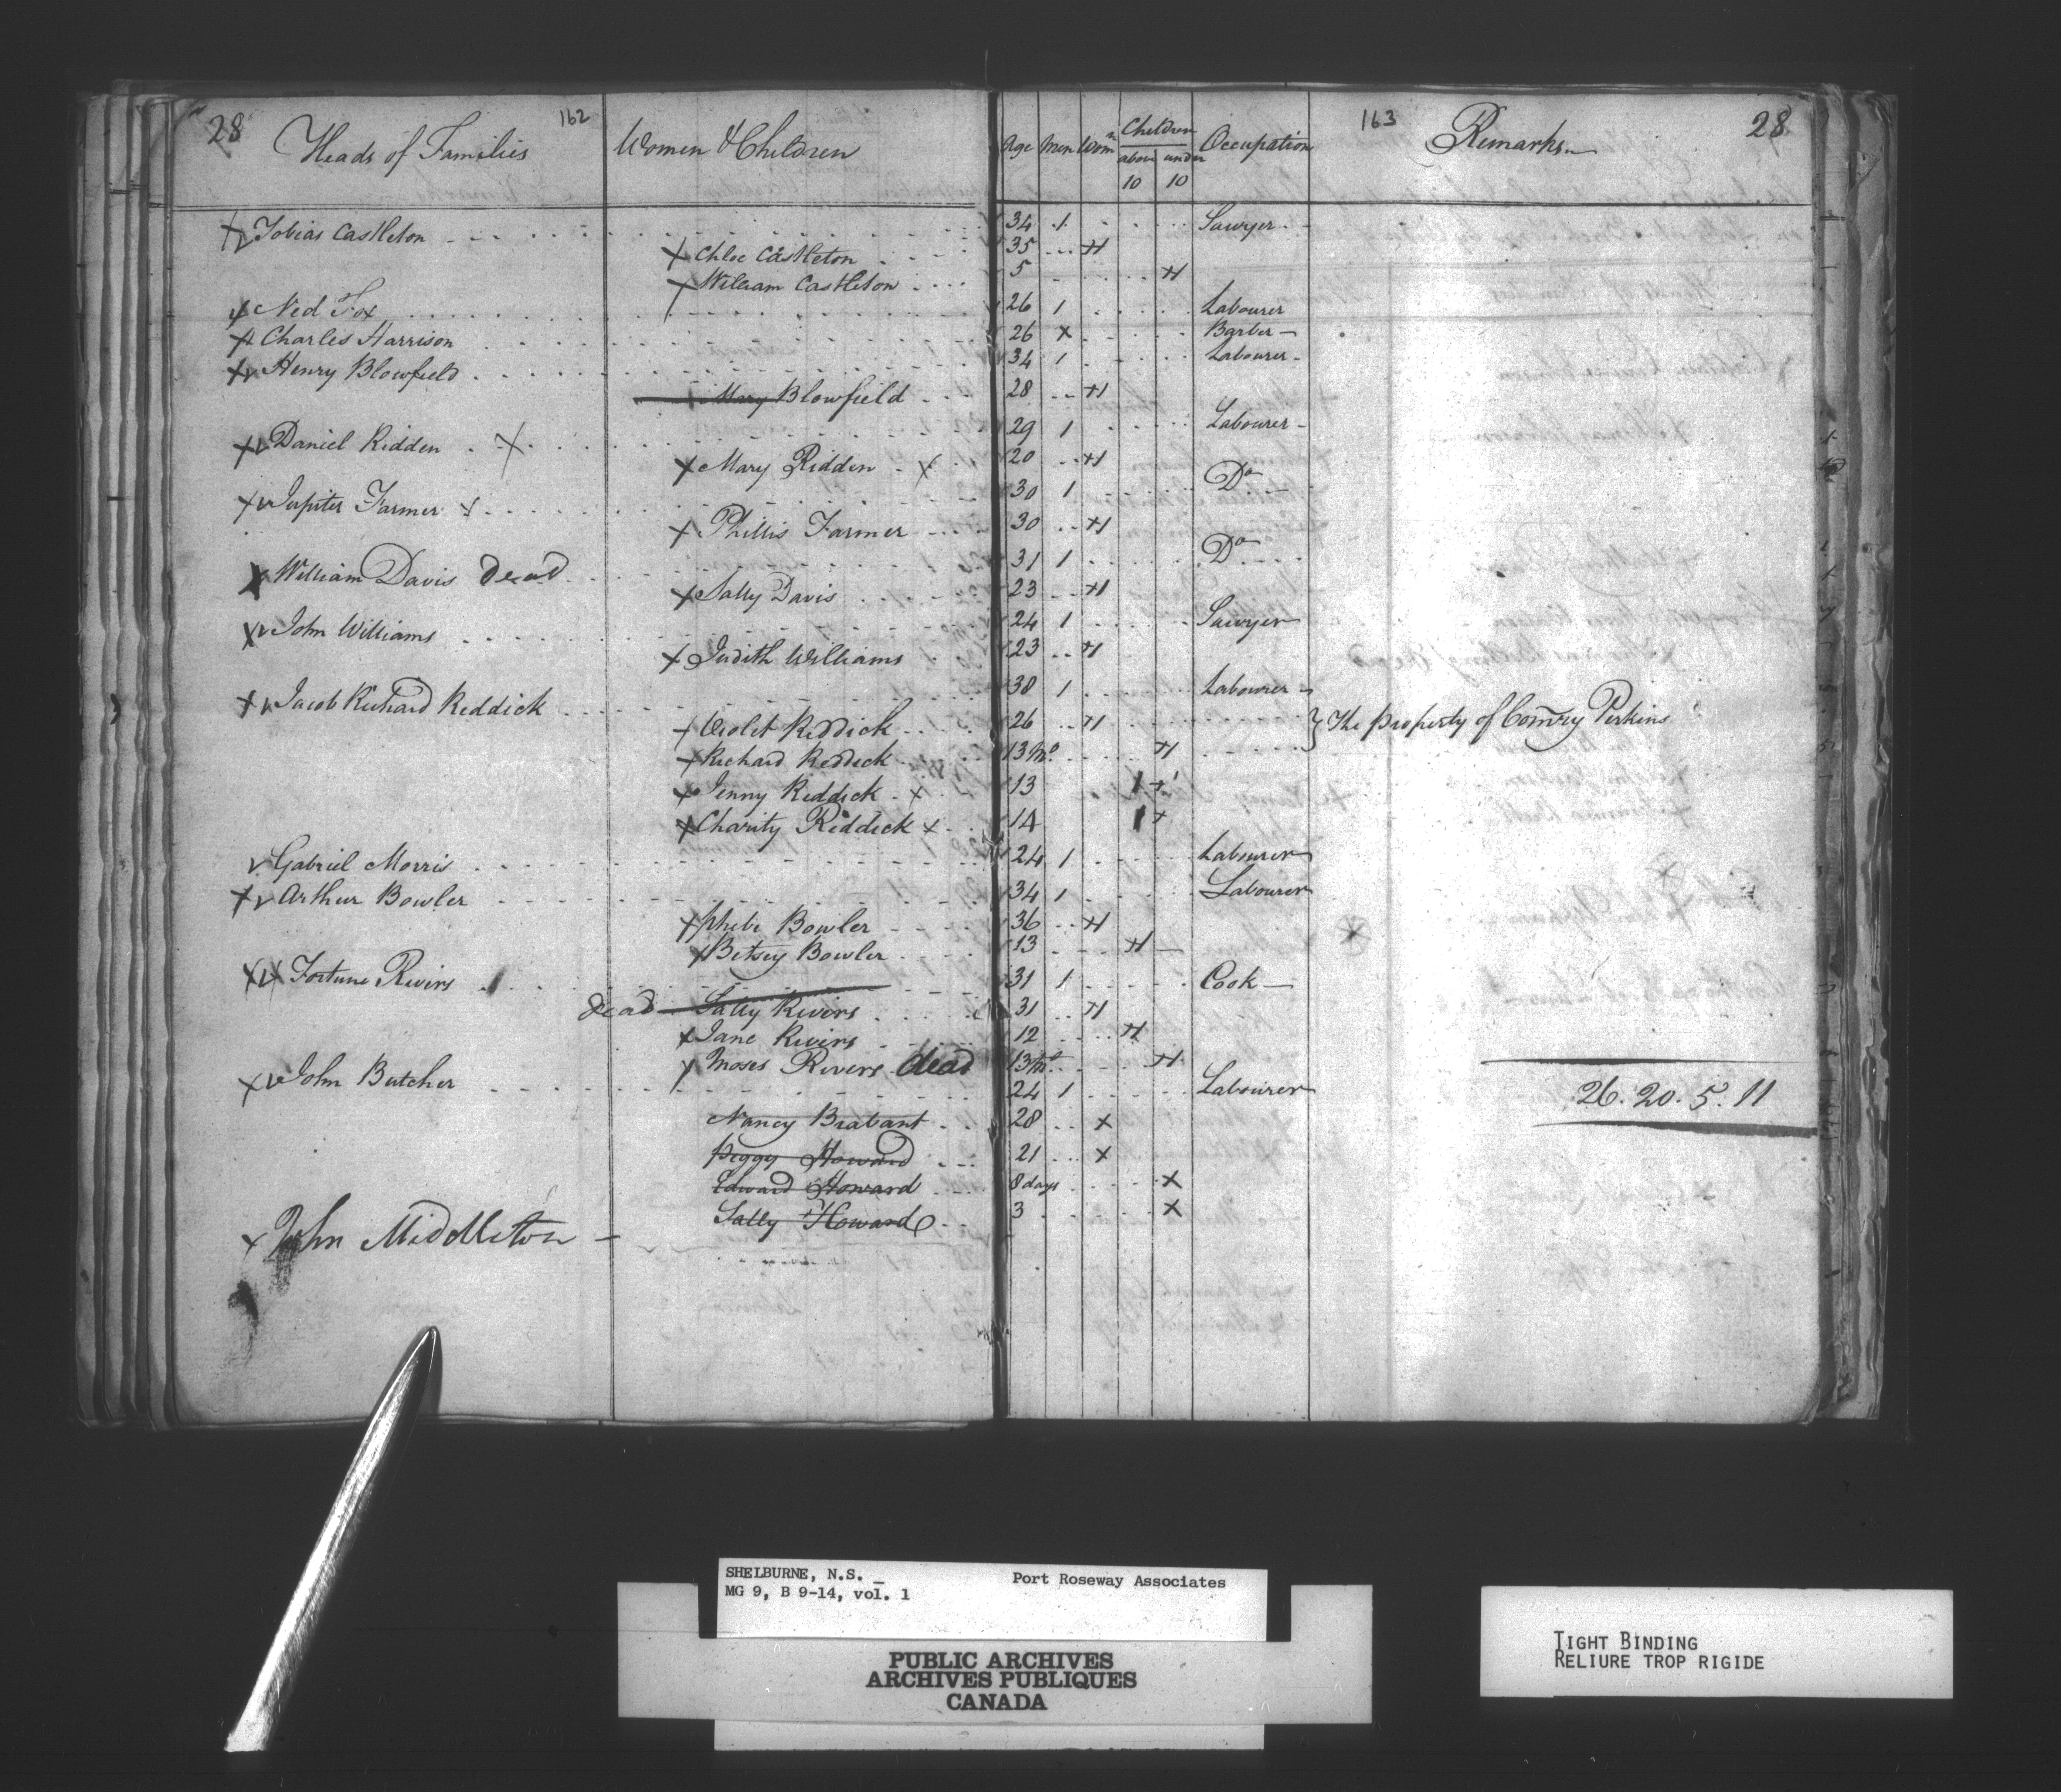 28 Heads of Families 162 Women & Children Age Men Wom.n Children above 10 under 10 Occupation 163 Remarks 28
Tobias Castleton 34 1 Sawyer
Chloe Castleton 35 1
William Castleton 5 1
Ned Fox 26 1 Labourer
Charles Harrison 26 x Barber
Henry Blowfield 34 1 Labourer
Mary Blowfield 28 1
Daniel Ridden 29 1 Labourer
Mary Ridden 20 1
Jupiter Farmer 30 1 Do
Phillis Farmer 30 1
William Davis dead 31 1 Do
Sally Davis 23 1
John Williams 24 1 Sawyer
Judith Williams 23 1
Jacob Richard Reddick 38 1 Labourer
Violet Reddick 26 1 } The property of Comry Perkins
Richard Reddick 13 Mo. 1
Jenny Reddick 13 1
Charity Reddick 14 1
Gabriel Morris 24 1 Labourer
Arthur Bowler 34 1 Labourer
Phebe Bowler 36 1
Betsey Bowler 13 1
Fortune Rivers 31 1 Cook
dead Sally Rivers 31 1
Jane Rivers 12 1
Moses Rivers dead 13 Mo. 1
John Butcher 24 1 Labourer
26. 20. 5. 11
Nancy Brabant 28 x
Peggy Howard 21 x
Edward Howard 8 days x
Sally Howard 3 x
John Middleton
SHELBURNE, N.S. Port Roseway Associates
MG 9, B 9-14, vol. 1
PUBLIC ARCHIVES
ARCHIVES PUBLIQUES
CANADA
TIGHT BINDING
RELIURE TROP RIGIDE